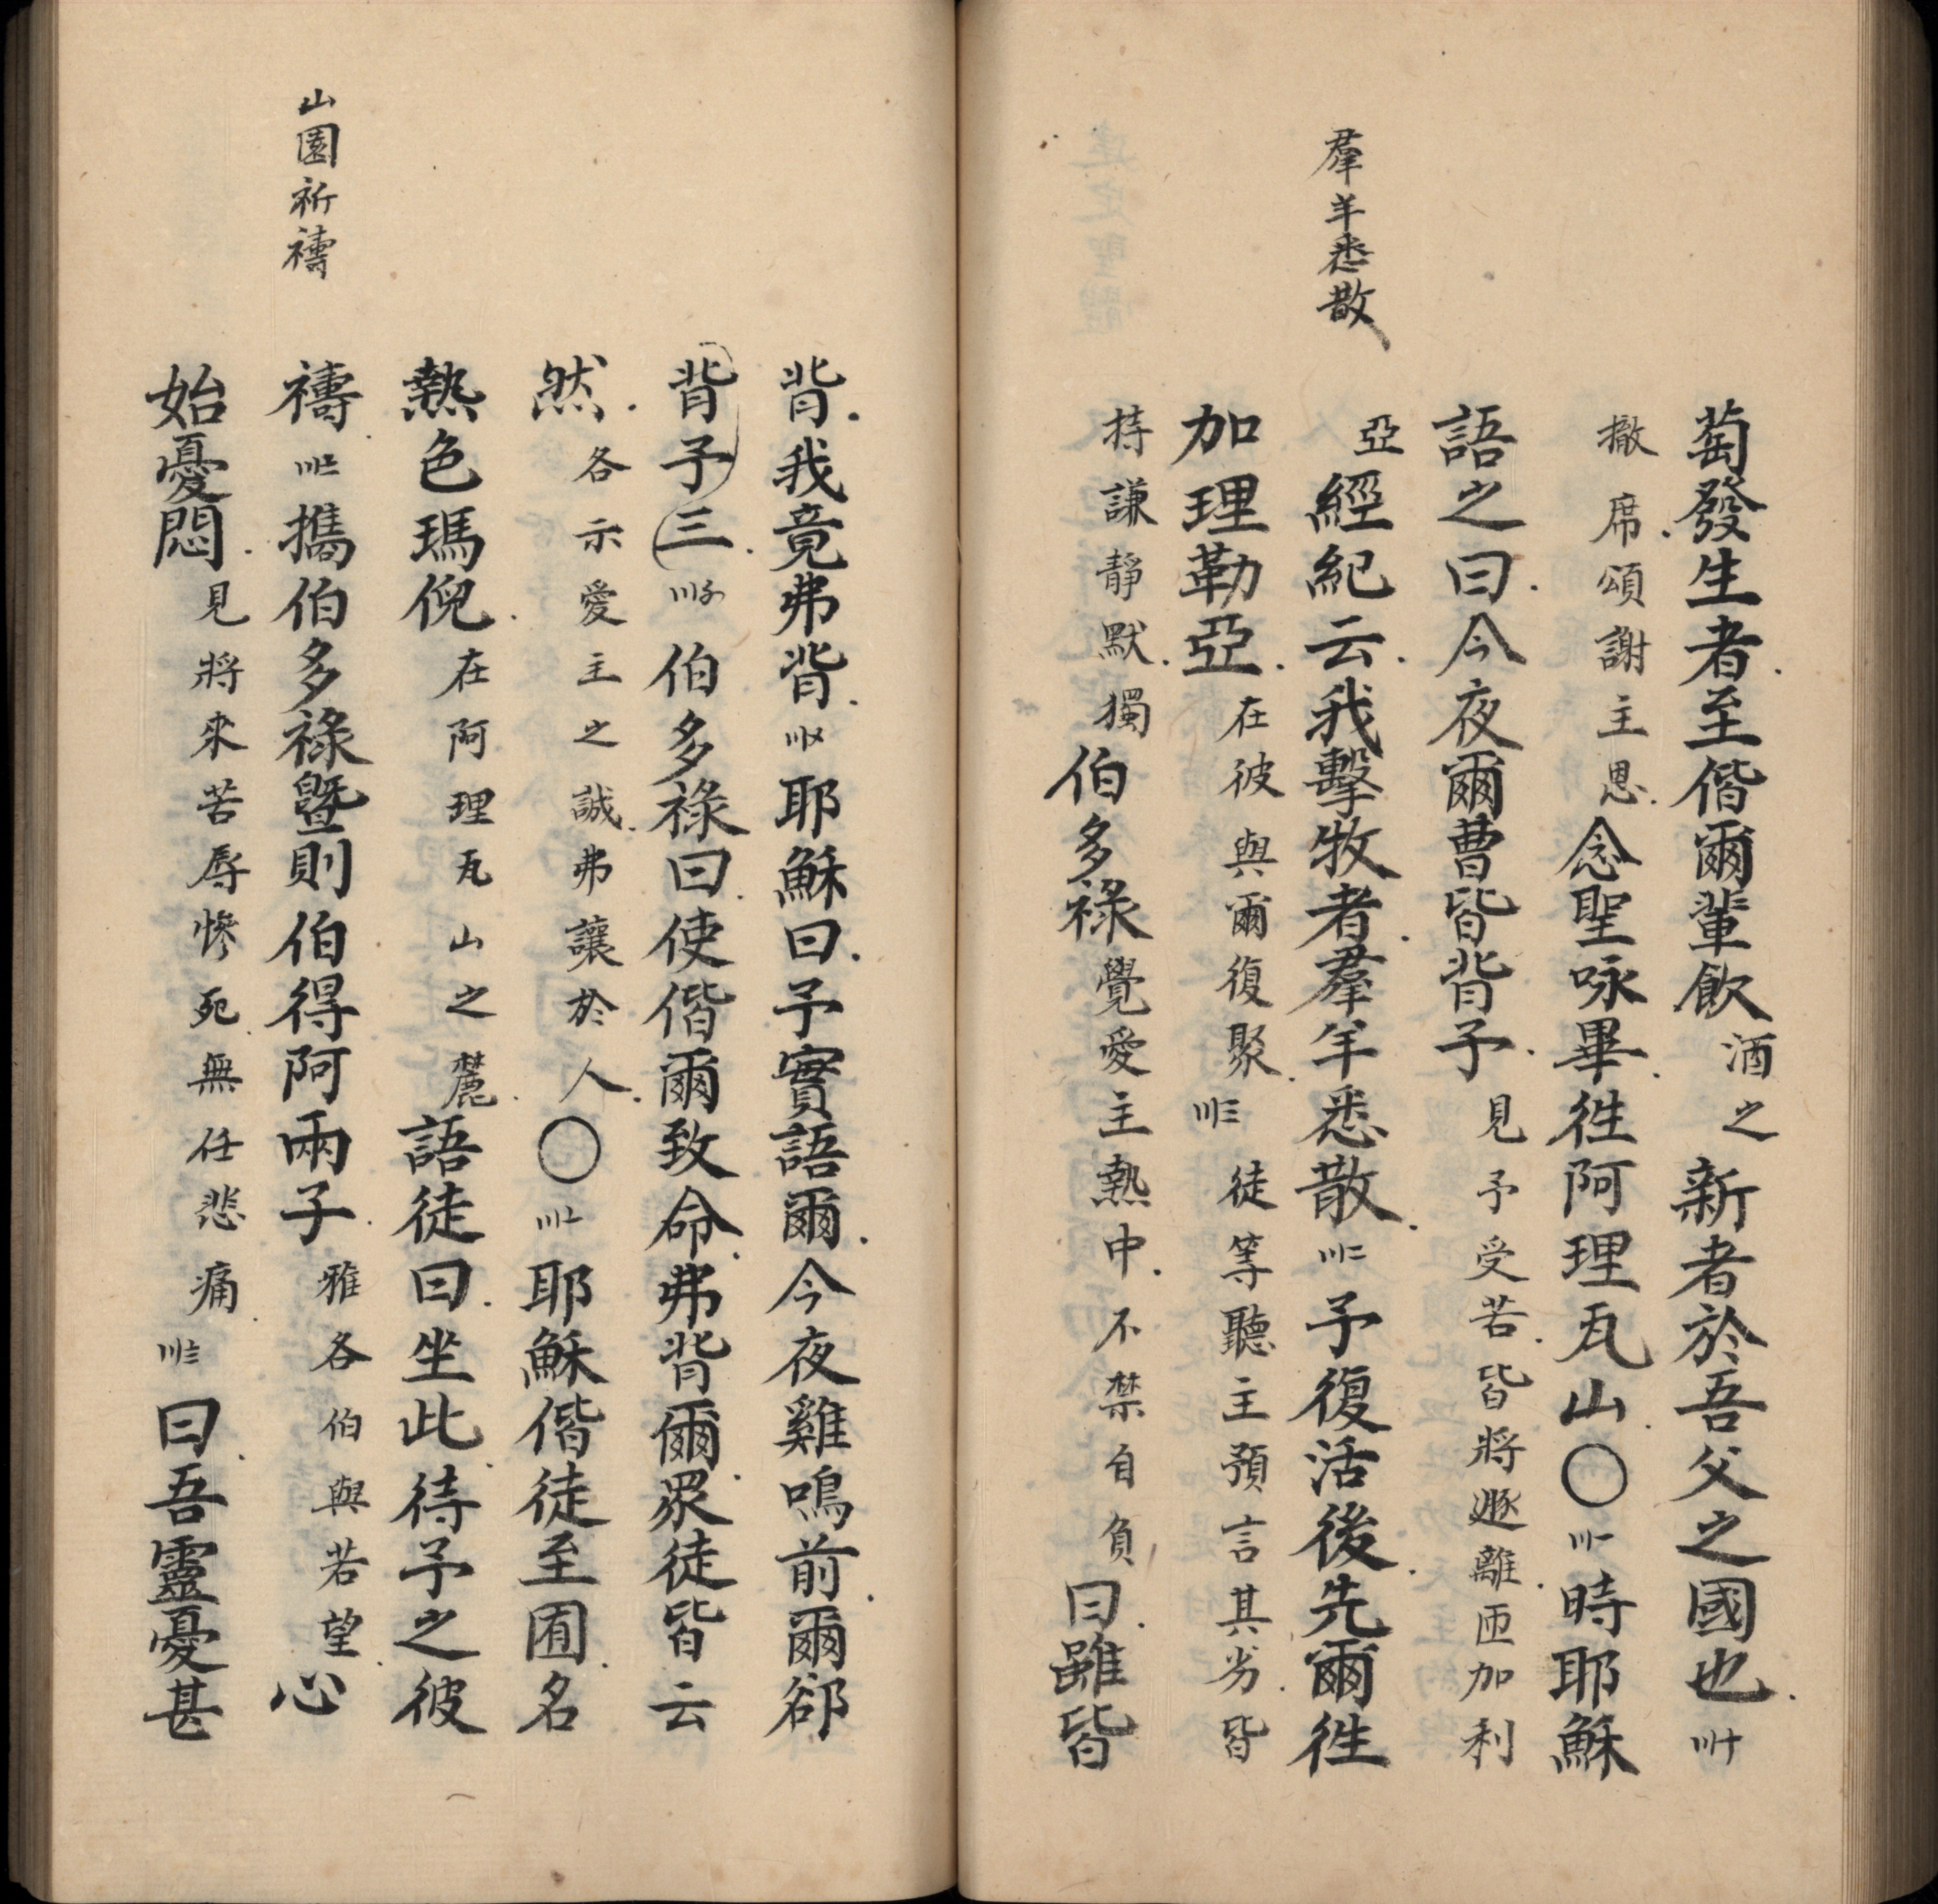 羣羊悉散
萄發生者至偕爾輩飲酒之新者於吾父之國也〢十
撤席頌謝主恩念聖咏畢徃阿理瓦山〇〢一時耶穌
語之曰今夜爾曹皆背予見予受苦皆將遯離匝加利
亞經紀云我擊牧者羣羊悉散〢二予復活後先爾徃
加理勒亞在彼與爾復聚〢三徒等聽主預言其劣皆
持謙靜默獨伯多祿覺愛主熱中不禁自負曰雖皆
背我竟弗背〢〤耶穌曰予實語爾今夜雞鳴前爾郤
背予三伯多祿曰使偕爾致命弗背爾眾徒皆云
然各示愛主之誠弗讓於人〇耶穌偕徒至囿名
熱色瑪倪在阿理瓦山之麓語徒曰坐此待予之彼
山園祈禱
禱攜伯多祿暨則伯得阿兩子雅各伯與若望心
始憂悶見將來苦辱慘死無任悲痛曰吾靈憂甚